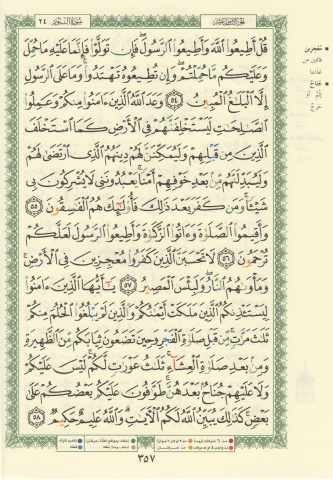 سورة النور ٢٤
الجزء الثامن عشر
قُلْ أَطِيعُوا اللَّهَ وَأَطِيعُوا الرَّسُولَ فَإِن تَوَلَّوْا فَإِنَّمَا عَلَيْهِ مَا حُمِّلَ
وَعَلَيْكُم مَّا حُمِّلْتُمْ وَإِن تُطِيعُوهُ تَهْتَدُوا وَمَا عَلَى الرَّسُولِ
إِلَّا الْبَلَاغُ الْمُبِينُ ٥٤ وَعَدَ اللَّهُ الَّذِينَ ءَامَنُوا مِنكُمْ وَعَمِلُوا
الصَّالِحَاتِ لَيَسْتَخْلِفَنَّهُمْ فِي الْأَرْضِ كَمَا اسْتَخْلَفَ
الَّذِينَ مِن قَبْلِهِمْ وَلَيُمَكِّنَنَّ لَهُمْ دِينَهُمُ الَّذِي ارْتَضَى لَهُمْ
وَلَيُبَدِّلَنَّهُم مِّن بَعْدِ خَوْفِهِمْ أَمْنًا يَعْبُدُونَنِي لَا يُشْرِكُونَ بِي
شَيْئًا وَمَن كَفَرَ بَعْدَ ذَلِكَ فَأُولَئِكَ هُمُ الْفَاسِقُونَ ٥٥
وَأَقِيمُوا الصَّلَوٰةَ وَءَاتُوا الزَّكَوٰةَ وَأَطِيعُوا الرَّسُولَ لَعَلَّكُمْ
تُرْحَمُونَ ٥٦ لَا تَحْسَبَنَّ الَّذِينَ كَفَرُوا مُعْجِزِينَ فِي الْأَرْضِ
وَمَأْوَاهُمُ النَّارُ وَلَبِئْسَ الْمَصِيرُ ٥٧ يَا أَيُّهَا الَّذِينَ ءَامَنُوا
لِيَسْتَأْذِنكُمُ الَّذِينَ مَلَكَتْ أَيْمَانُكُمْ وَالَّذِينَ لَمْ يَبْلُغُوا الْحُلُمَ مِنكُمْ
ثَلَاثَ مَرَّاتٍ مِّن قَبْلِ صَلَوٰةِ الْفَجْرِ وَحِينَ تَضَعُونَ ثِيَابَكُم مِّنَ الظَّهِيرَةِ
وَمِن بَعْدِ صَلَوٰةِ الْعِشَاءِ ثَلَاثُ عَوْرَاتٍ لَّكُمْ لَيْسَ عَلَيْكُمْ
وَلَا عَلَيْهِمْ جُنَاحٌ بَعْدَهُنَّ طَوَّافُونَ عَلَيْكُم بَعْضُكُمْ عَلَى
بَعْضٍ كَذَلِكَ يُبَيِّنُ اللَّهُ لَكُمُ الْآيَاتِ وَاللَّهُ عَلِيمٌ حَكِيمٌ ٥٨
معجزين
فائتين من
عذابنا
جناح
إثم أو
حرج
٣٥٧